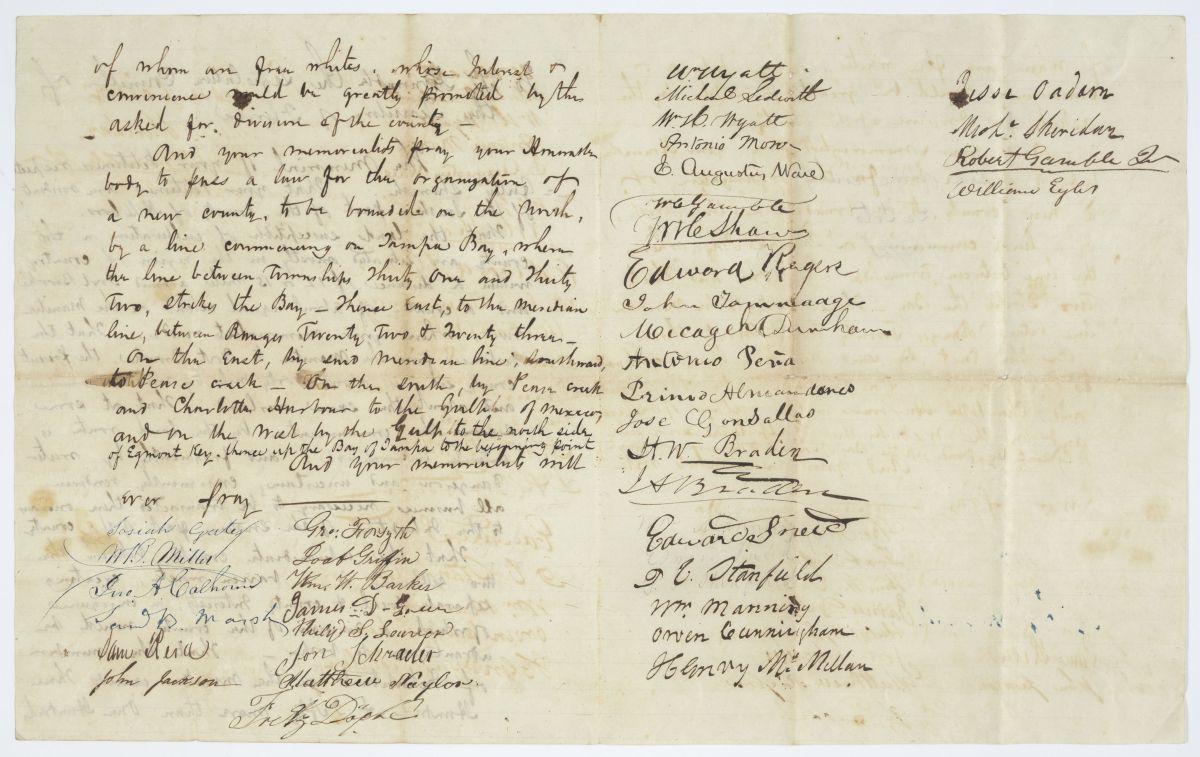 of whom are free whites, whose Interest &
convenience would be greatly promoted by this
asked for division of the county —
And your memorialists pray your Honorable
body to pass a law for the organization of
a new county, to be bounded on the North,
by a line commencing on Tampa Bay, where
the line between Townships Thirty One and Thirty
Two, strikes the Bay — Thence East, to the meridian
line, between Ranges Twenty Two & Twenty three —
On the East, by said meridian line, southward,
to Pease creek — On the south, by Pease creek
and Charlotte Harbour to the Gulph of Mexico,
and on the West by the Gulph to the north side
of Egmont Key. thence up the Bay of Tampa to the beginning point
And your memorialists will
ever pray
Josiah Gates
Wm. Miller
Jno A Calhoun
Marsh
Sam Reid
John Jackson
Geo. Forsyth
Joab Griffin
Wm. W Barker
James D. Green
Jon Schrader
Matthew Naylor.
Wm Wyatt
Michael Ledwith
Wm H. Wyatt
Antonio
E. Augustus Ware
W G Gamble
Wm C Shaw
Edward Rogers
John Tammadge
Durnham
Antonio Peña
Primo
Jose Gonsallas
H. W. Braden
J A Braden
Edward Snead
D C Stanfield
Wm. Manning
Owen Cunningham
Henry McMillan
Jesse
Michl. Sheridan
Robert Gamble Jr
William Eyles